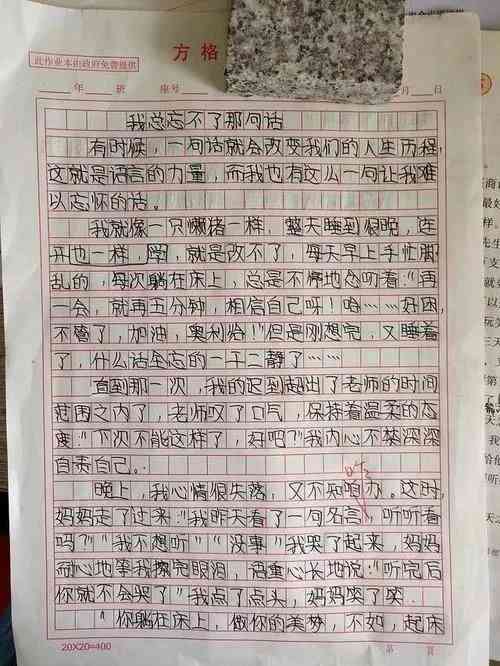 此作业本由政府免费提供
方格
年 班 座号
月 日
我总忘不了那句话
有时候,一句话就会改变我们的人生历程,
这就是语言的力量,而我也有这么一句让我难
以忘怀的话。
我就像一只懒猪一样,整天睡到很晚,连
开也一样,学,就是改不了,每天早上手忙脚
乱的,每次躺在床上,总是不停地念叨着:“再
一会,就再五分钟,相信自己呀!哈……好困,
不管了,加油,奥利给!”但是刚想完,又睡着
了,什么话全忘的一干二静了……
直到那一次,我的迟到超出了老师的时间
范围之内了,老师叹了口气,保持着温柔的态
度:“下次不能这样了,好吧?”我内心不禁深深
自责自己。
晚上,我心情很失落,又不知咱办。这时,
妈妈走了过来:“我昨天看了一句名言,听听看
吗?”“我不想听”“没事”我哭了起来,妈妈
耐心地等我擦完眼泪,语重心长地说:“听完后
你就不会哭了”我点了点头,妈妈笑了笑.
“你躺在床上,做你的美梦,不如,起床
20×20=400
第 页